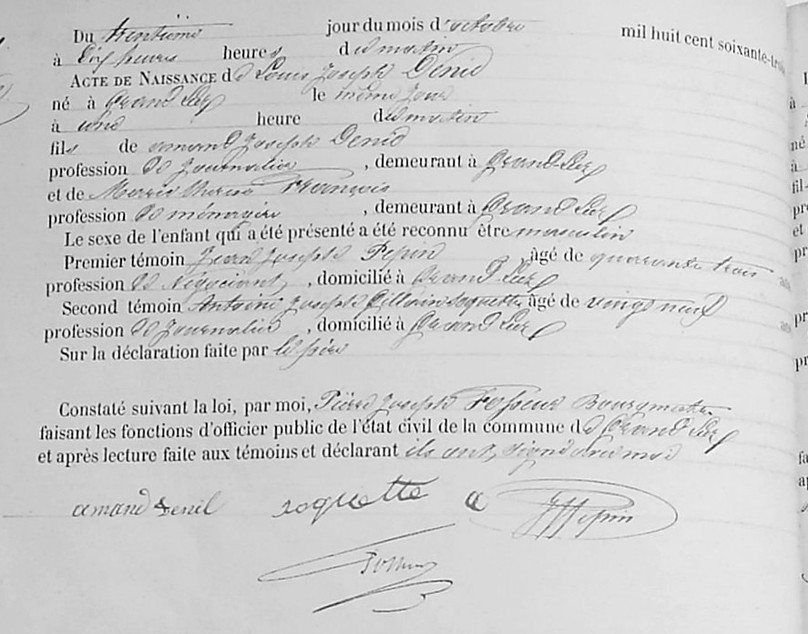 Du trentième jour du mois d'octobre mil huit cent soixante-trois
à dix heures heures du matin
ACTE DE NAISSANCE de Louis Joseph Denil
né à Grand Lez le même jour
à une heure du matin
fils de amand Joseph Denil
profession de Journalier, demeurant à Grand-Lez
et de Marie thérèse François
profession de ménagère, demeurant à Grand Lez
Le sexe de l'enfant qui a été présenté a été reconnu être masculin
Premier témoin Jean Joseph Pepin âgé de quarante trois ans
profession de négociant, domicilié à Grand-Lez
Second témoin Antoine Joseph roquette âgé de vingt neuf ans
profession de Journalier, domicilié à Grand Lez
Sur la déclaration faite par le père
Constaté suivant la loi, par moi, Pierre Joseph Bourgmestre
faisant les fonctions d'officier public de l'état civil de la commune de Grand Lez
et après lecture faite aux témoins et déclarant ils ont signé avec moi
amand Denil roquette a JJ Pepin